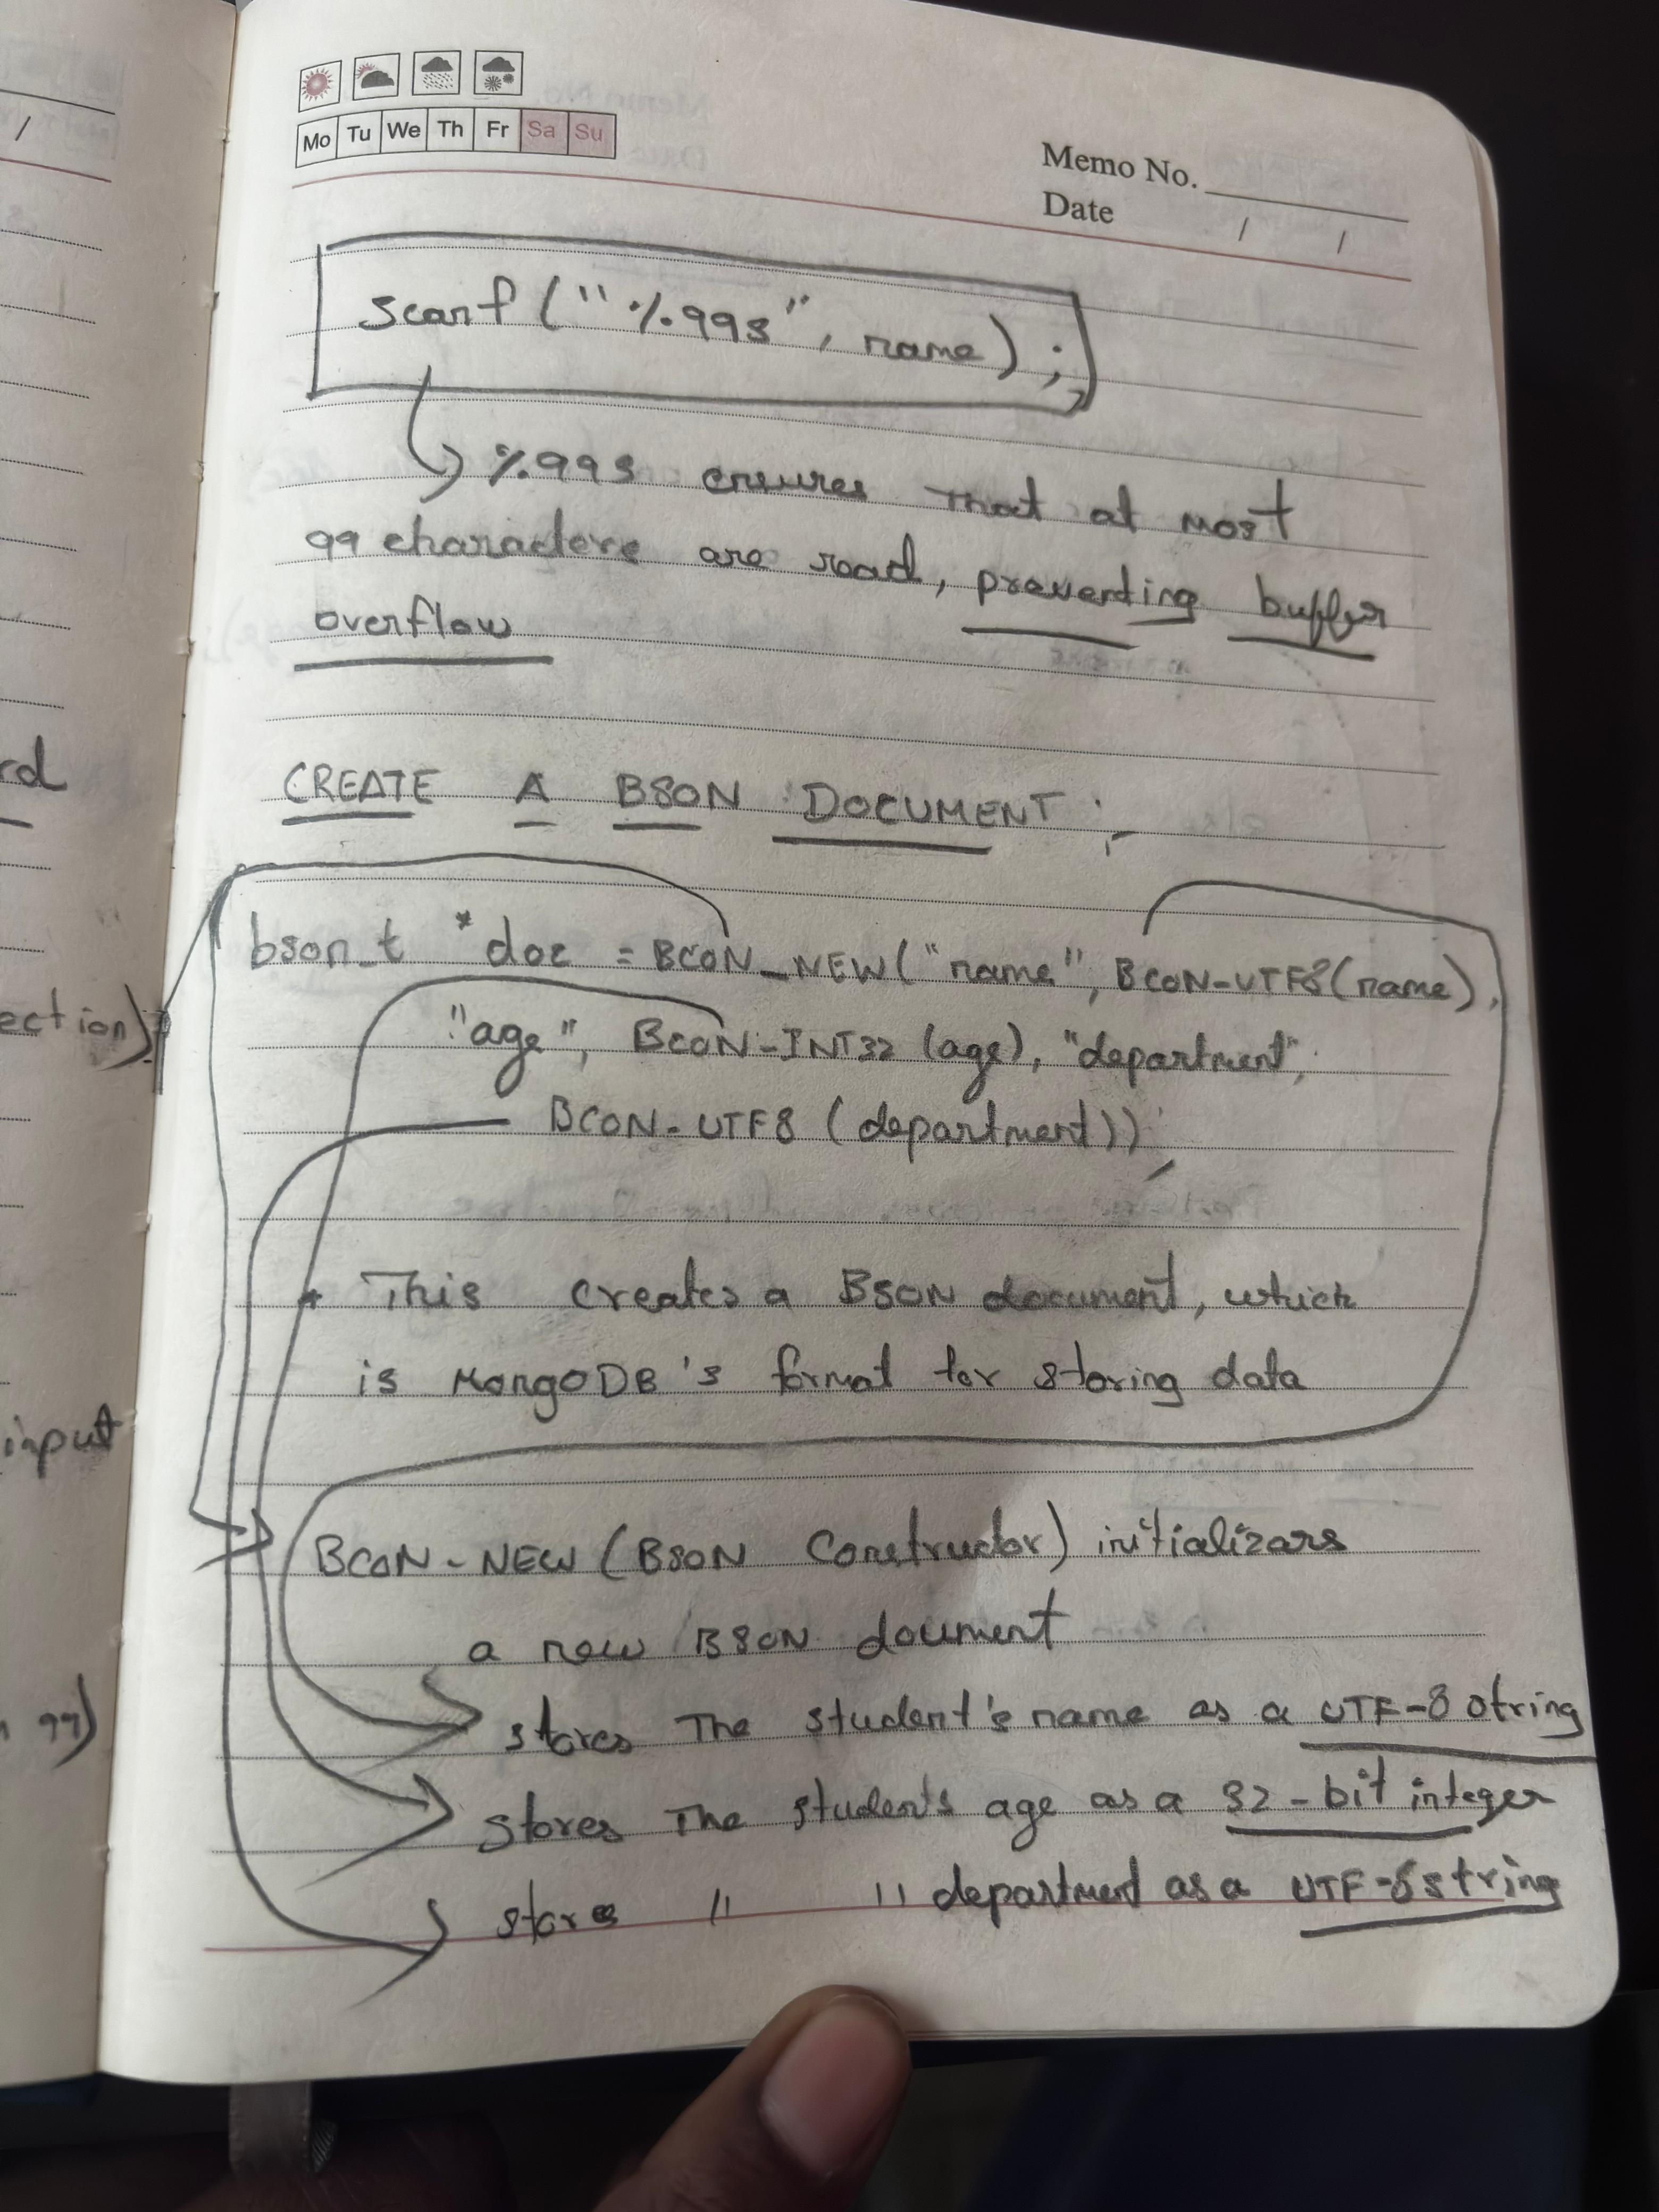 Mo Tu We Th Fr Sa Su
Memo No.
Date / /
scanf ("%99s", name);
%99s ensures that at most
99 characters are read, preventing buffer
overflow
CREATE A BSON DOCUMENT ;
bson_t *doc = BCON_NEW("name", BCON-UTF8(name),
"age", BCON-INT32 (age), "department",
BCON-UTF8 (department));
* This creates a BSON document, which
is MongoDB's format for storing data
BCON-NEW (BSON Constructor) initializars
a new BSON doument
stores The student's name as a UTF-8 string
stores The student's age as a 32-bit integer
stores " " department as a UTF-8 string
/
rd
ection)
input
99)